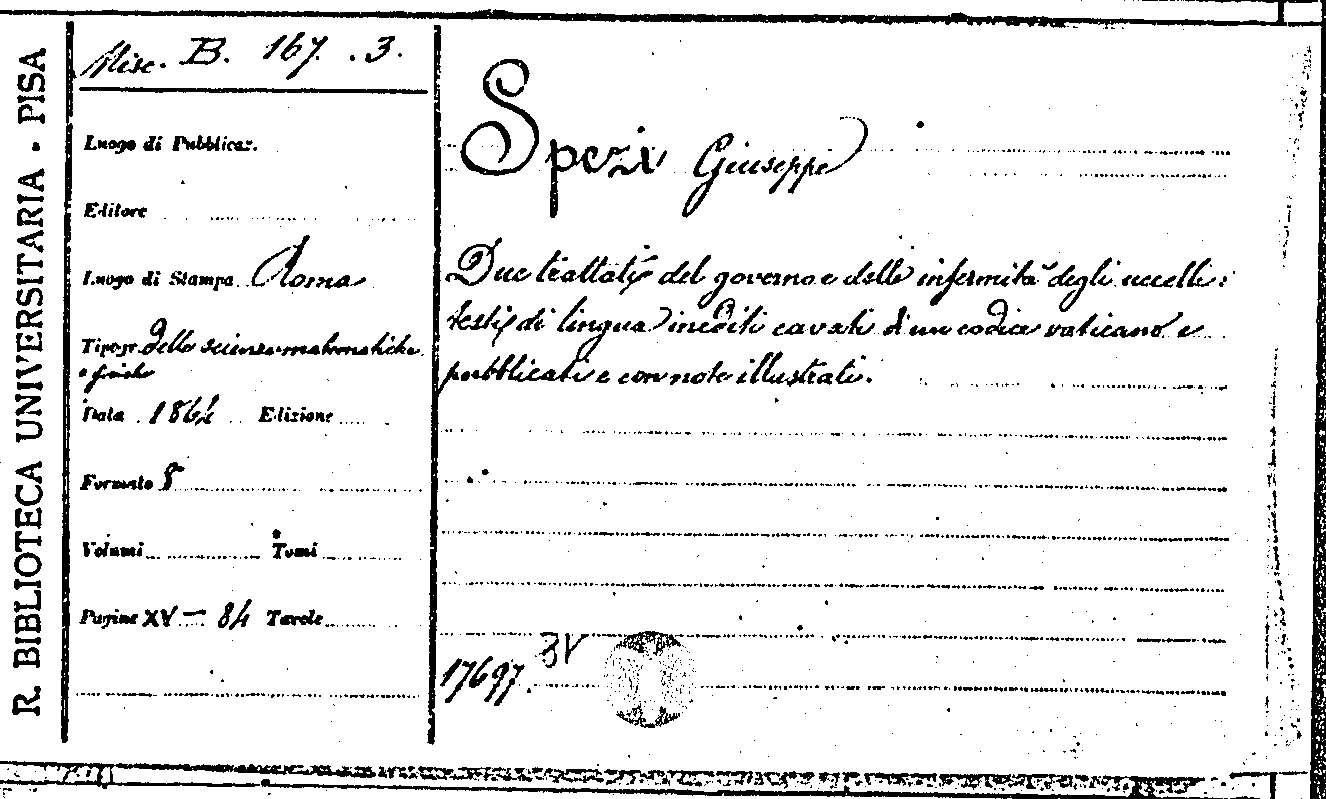 R. BIBLIOTECA UNIVERSITARIA · PISA
Misc. B. 167. .3.
Luogo di Pubblicaz.
Editore
Luogo di Stampa Roma
Tipogr. delle scienze matematiche
e fisiche
Data 1864 Edizione
Formato 8
Volumi Tomi
Pagine XV — 84 Tavole
Spezi Giuseppe
Due trattati del governo e delle infermità degli uccelli:
testi di lingua inediti cavati d'un codice vaticano e
pubblicati e con note illustrati.
17697.